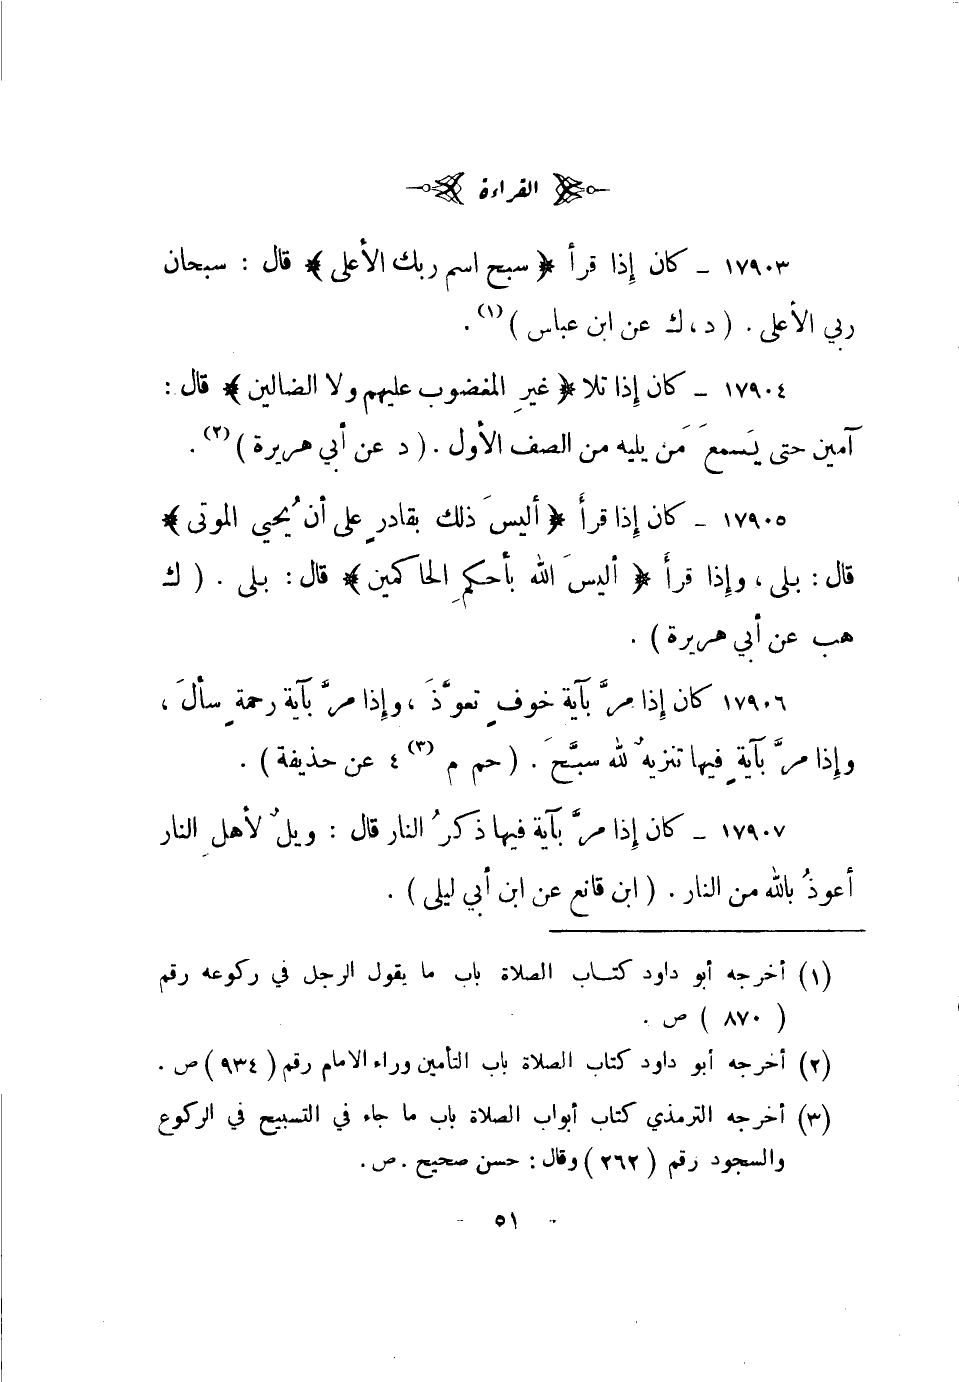 القراءة
١٧٩٠٣ ـ كان إذا قرأ ﴿ سبح اسم ربك الأعلى ﴾ قال : سبحان
ربي الأعلى . ( د ، ك عن ابن عباس )(١) .
١٧٩٠٤ ـ كان إذا تلا ﴿ غيرِ المغضوب عليهم ولا الضالين ﴾ قال :
آمين حتى يَسمعَ مَن يليه من الصف الأول . ( د عن أبي هريرة )(٢) .
١٧٩٠٥ ـ كان إذا قرأَ ﴿ أليسَ ذلك بقادرٍ على أن يُحيي الموتى ﴾
قال : بلى ، وإذا قرأَ ﴿ أليسَ الله بأحكمِ الحاكمين ﴾ قال : بلى . ( ك
هب عن أبي هريرة ) .
١٧٩٠٦ كان إذا مرَّ بآية خوفٍ تعوَّذَ ، وإذا مرَّ بآية رحمةٍ سألَ ،
وإذا مرَّ بآيةٍ فيها تنزيهٌ لله سبَّحَ . ( حم م (٣) ٤ عن حذيفة ) .
١٧٩٠٧ ـ كان إذا مرَّ بآية فيها ذكرُ النار قال : ويلٌ لأهلِ النار
أعوذُ بالله من النار . ( ابن قانع عن ابن أبي ليلى ) .
(١) أخرجه أبو داود كتاب الصلاة باب ما يقول الرجل في ركوعه رقم
( ٨٧٠ ) ص .
(٢) أخرجه أبو داود كتاب الصلاة باب التأمين وراء الامام رقم ( ٩٣٤ ) ص .
(٣) أخرجه الترمذي كتاب أبواب الصلاة باب ما جاء في التسبيح في الركوع
والسجود رقم ( ٢٦٢ ) وقال : حسن صحيح . ص .
- ٥١ -